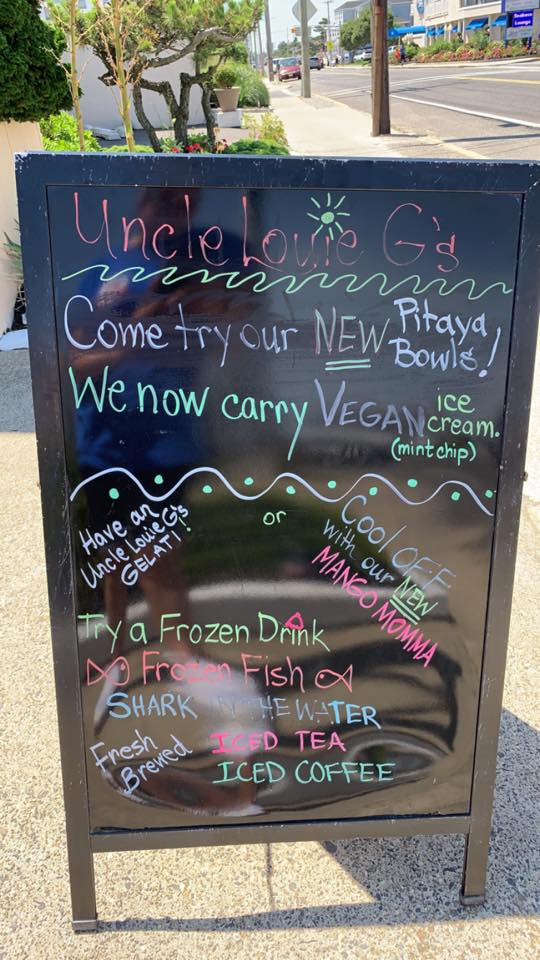 Uncle Louie G's
Come try our NEW Pitaya Bowls!
We now carry VEGAN ice cream.
(mint chip)
Have an
Uncle Louie G's
GELATI!
or
Cool OFF
with our NEW
MANGO MOMMA
Try a Frozen Drink
Frozen Fish
SHARK IN THE WATER
Fresh Brewed
ICED TEA
ICED COFFEE